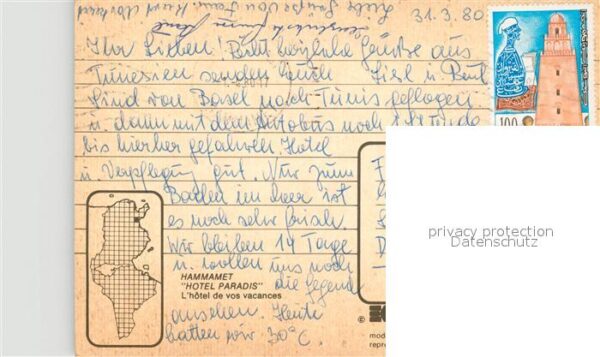 31.3.80
Ihr Lieben! Recht herzliche Grüsse aus
Tunesien senden Euch
Sind von Basel nach Tunis geflogen
u. dann mit dem Autobus noch
bis hierher gefahren. Hotel
u. Verpflegung gut. Nur zum
Baden im Meer ist
es noch sehr frisch.
Wir bleiben 14 Tage
u. wollen uns noch
die Gegend
ansehen. Heute
hatten wir 30°C.
100
HAMMAMET
"HOTEL PARADIS"
L'hôtel de vos vacances
©
privacy protection
Datenschutz